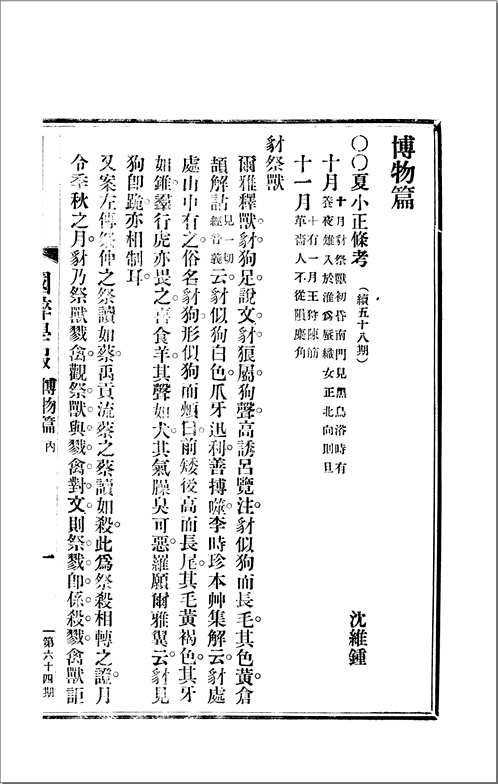 博物篇
〇〇夏小正條考（續五十八期） 沈維鍾
十月 十月豺祭獸初昏南門見黑鳥浴時有
養夜雉入於淮爲蜃織女正北向則旦
十一月 十有一月王狩陳筋
革嗇人不從隕麋角
豺祭獸
爾雅釋獸豺狗足說文豺狼屬狗聲高誘呂覽注豺似狗而長毛其色黃倉
頡解詁見一切經音義云豺似狗白色爪牙迅利善搏噬李時珍本艸集解云豺處
處山中有之俗名豺狗形似狗而頰白前矮後高而長尾其毛黃褐色其牙
如錐羣行虎亦畏之喜食羊其聲如犬其氣臊臭可惡羅願爾雅翼云豺見
狗卽跪亦相制耳
又案左傳祭仲之祭讀如蔡禹貢流蔡之蔡讀如殺此爲祭殺相轉之證月
令季秋之月豺乃祭獸戮禽觀祭獸與戮禽對文則祭戮卽係殺戮禽獸詎
國粹學報 博物篇 內 一 第六十四期